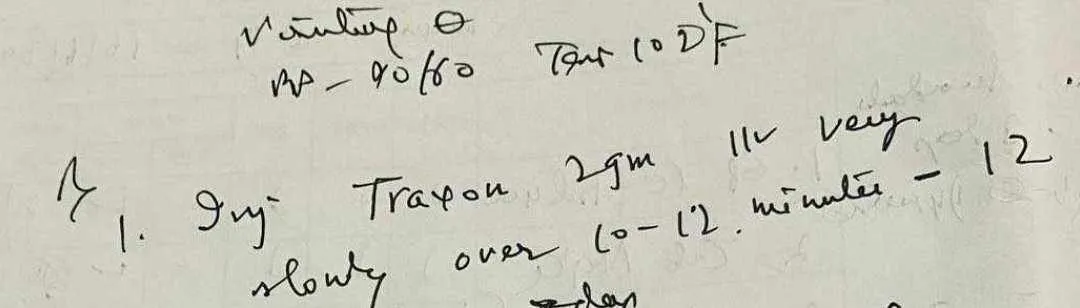 Vomiting ⊖
BP - 90/60 Temp 102°F
Rx
1. Inj Traxon 2gm I/V very
slowly over 10-12 minutes - 12